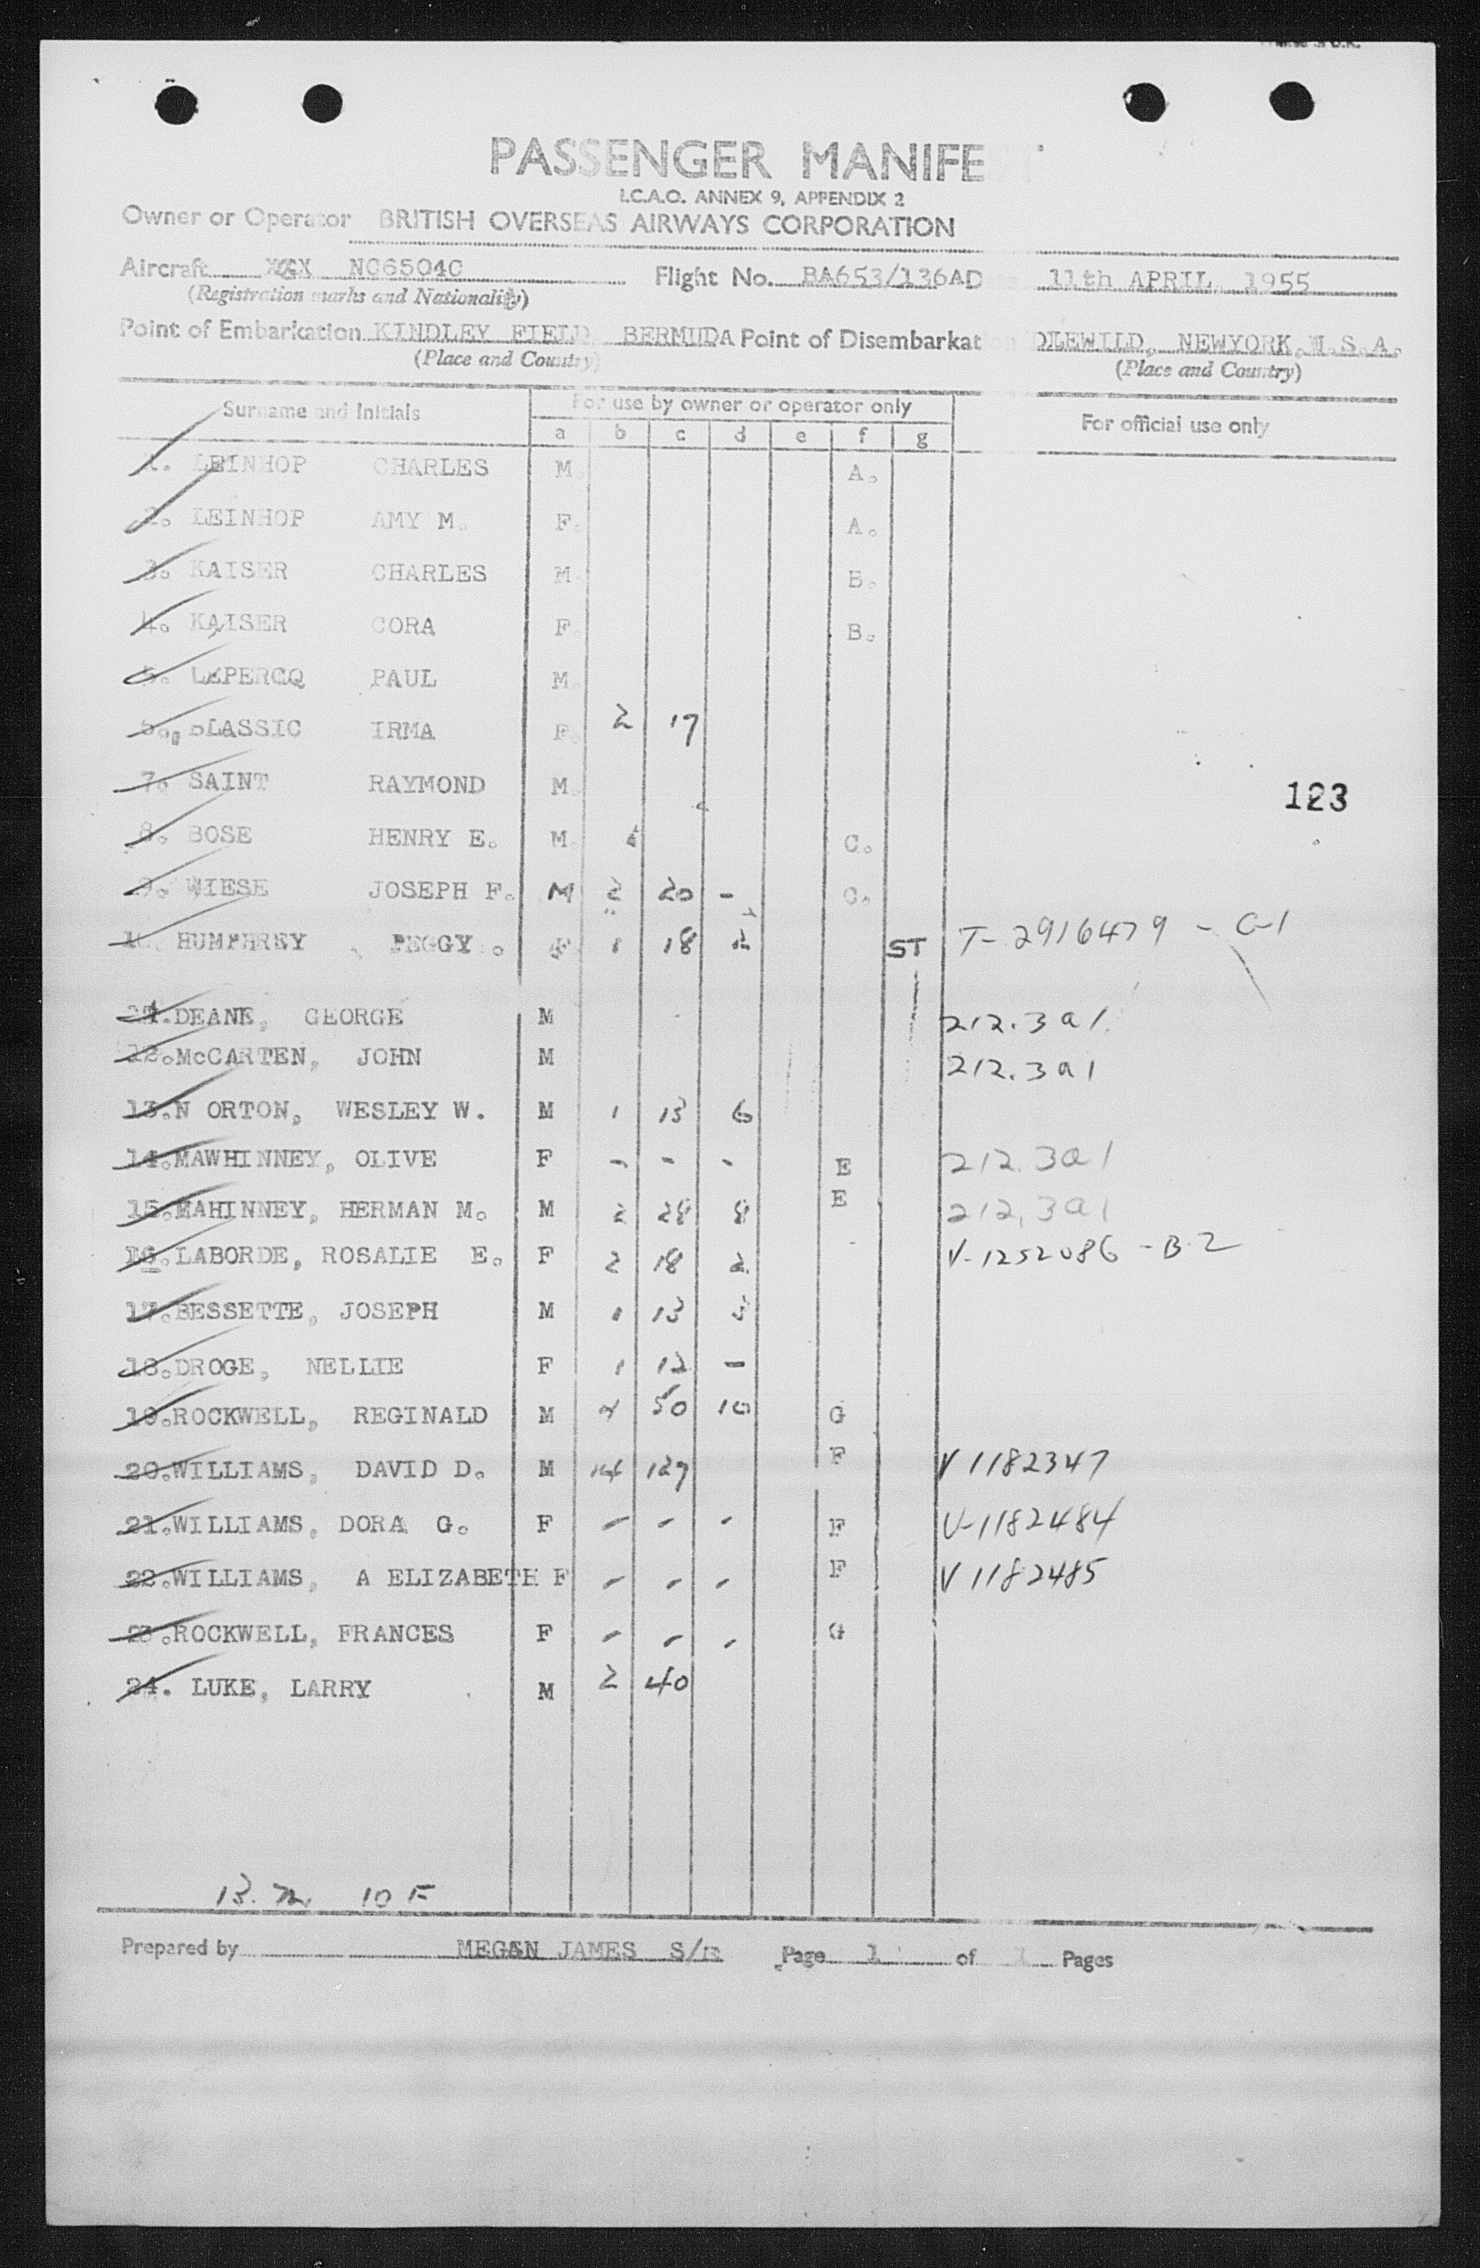 PASSENGER MANIFE
I.C.A.O. ANNEX 9, APPENDIX 2
Owner or Operator BRITISH OVERSEAS AIRWAYS CORPORATION
Aircraft NC6504C Flight No. BA653/136AD 11th APRIL, 1955
(Registration marks and Nationality)
Point of Embarkation KINDLEY FIELD, BERMUDA Point of Disembarkation IDLEWILD, NEWYORK, U.S.A.
(Place and Country) (Place and Country)
Surname and Initials For use by owner or operator only For official use only
a b c d e f g
1. LEINHOP CHARLES M. A.
2. LEINHOP AMY M. F. A.
3. KAISER CHARLES M. B.
4. KAISER CORA F. B.
5. LEPERCQ PAUL M.
CLASSIC IRMA F. 2 17
7. SAINT RAYMOND M.
123
8. BOSE HENRY E. M. C.
9. WIESE JOSEPH F. M 2 20 - C.
10. HUMPHREY PEGGY F 1 18 2 ST T-2916479 - C-1
DEANE, GEORGE M 212.3a1
12. McCARTEN, JOHN M 212.3a1
13. N ORTON, WESLEY W. M 1 13 6
14. MAWHINNEY, OLIVE F - - - E 212.3a1
15. MAHINNEY, HERMAN M. M 2 28 8 E 212.3a1
16. LABORDE, ROSALIE E. F 2 18 2 V-1252086 - B-2
17. BESSETTE, JOSEPH M 1 13 3
18. DROGE, NELLIE F 1 12 -
19. ROCKWELL, REGINALD M 4 50 10 G
20. WILLIAMS, DAVID D. M 14 129 F V 1182347
21. WILLIAMS, DORA G. F - - - F V-1182484
22. WILLIAMS, A ELIZABETH F - - - F V 1182485
23. ROCKWELL, FRANCES F - - - G
24. LUKE, LARRY M 2 40
13. M. 10 F
Prepared by MEGAN JAMES Page 1 of 1 Pages